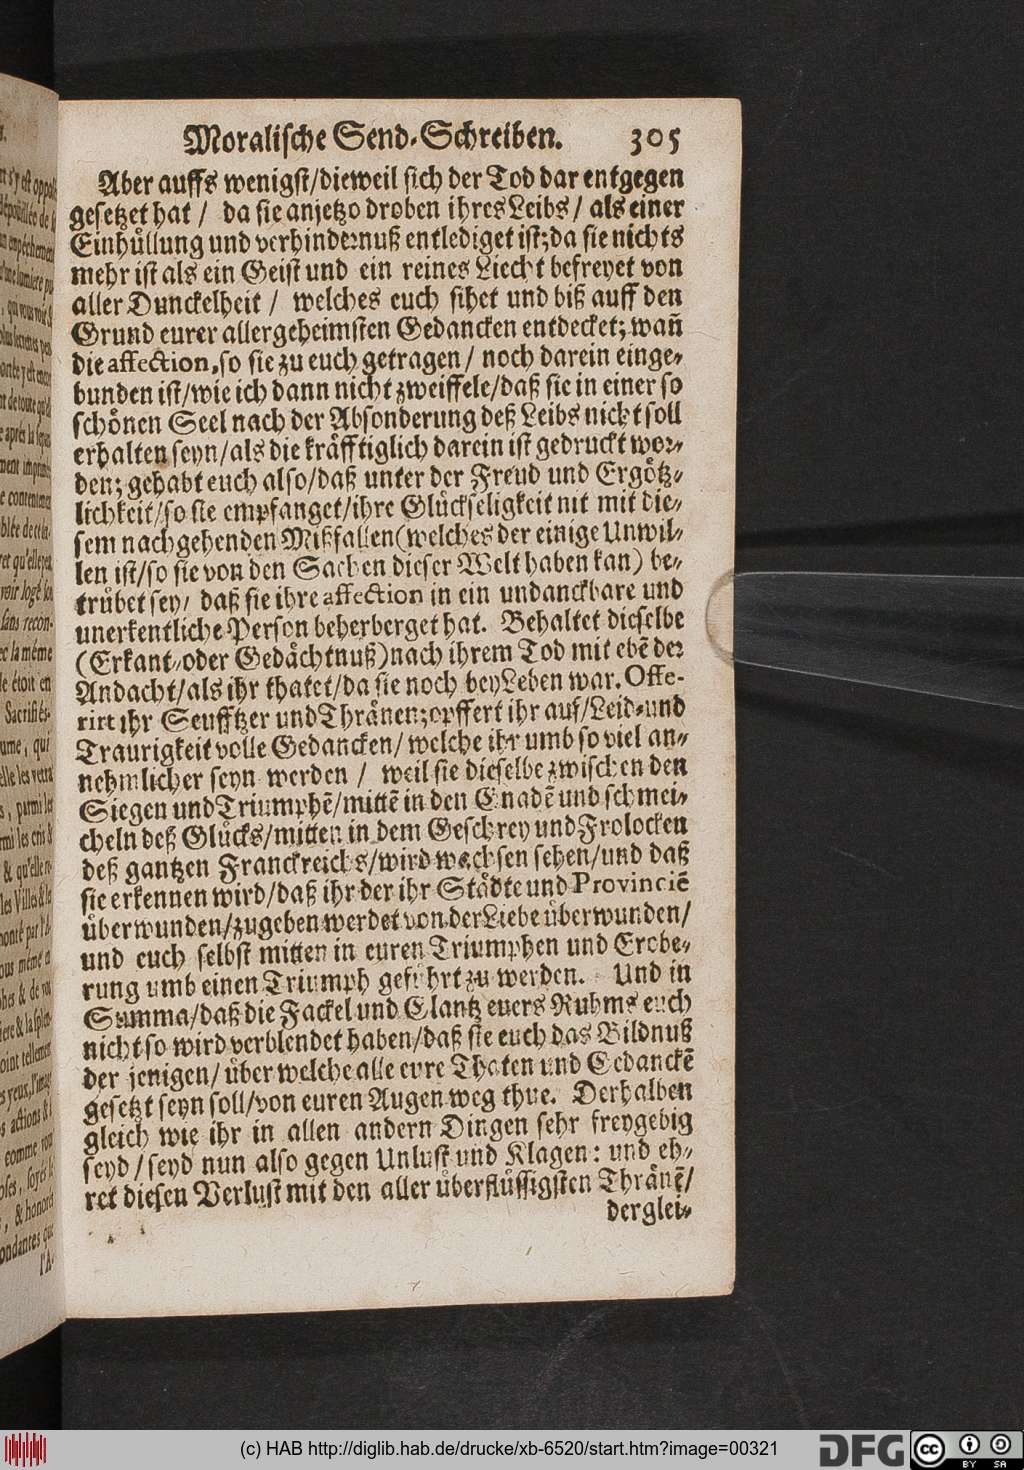 Moralische Send-Schreiben. 305
Aber auffs wenigst/dieweil sich der Tod dar entgegen
gesetzet hat / da sie anjetzo droben ihres Leibs / als einer
Einhüllung und verhindernuß entlediget ist; da sie nichts
mehr ist als ein Geist und ein reines Liecht befreyet von
aller Dunckelheit / welches euch sihet und biß auff den
Grund eurer allergeheimsten Gedancken entdecket; wañ
die affection, so sie zu euch getragen / noch darein einge-
bunden ist/wie ich dann nicht zweiffele/daß sie in einer so
schönen Seel nach der Absonderung deß Leibs nicht soll
erhalten seyn/als die kräfftiglich darein ist gedruckt wor-
den; gehabt euch also/daß unter der Freud und Ergötz-
lichkeit/so sie empfanget/ihre Glückseligkeit nit mit die-
sem nachgehenden Mißfallen(welches der einige Unwil-
len ist/so sie von den Sachen dieser Welt haben kan) be-
trübet sey/ daß sie ihre affection in ein undanckbare und
unerkentliche Person beherberget hat. Behaltet dieselbe
(Erkant-oder Gedächtnuß)nach ihrem Tod mit ebẽ der
Andacht/als ihr thatet/da sie noch bey Leben war. Offe-
rirt ihr Seufftzer und Thränen; opffert ihr auf/Leid-und
Traurigkeit volle Gedancken/ welche ihr umb so viel an-
nehmlicher seyn werden / weil sie dieselbe zwischen den
Siegen und Triumphẽ/mittẽ in den Gnadẽ und schmei-
cheln deß Glücks/mitten in dem Geschrey und Frolocken
deß gantzen Franckreichs/wird wachsen sehen/und daß
sie erkennen wird/daß ihr der ihr Städte und Provinciẽ
überwunden/zugeben werdet von der Liebe überwunden/
und euch selbst mitten in euren Triumphen und Erobe-
rung umb einen Triumph geführt zu werden. Und in
Summa/daß die Fackel und Glantz euers Ruhms euch
nicht so wird verblendet haben/daß sie euch das Bildnuß
der jenigen/ über welche alle eure Thaten und Gedanckẽ
gesetzt seyn soll/von euren Augen weg thue. Derhalben
gleich wie ihr in allen andern Dingen sehr freygebig
seyd / seyd nun also gegen Unlust und Klagen: und eh-
ret diesen Verlust mit den aller überflüssigsten Thränẽ/
derglei-
(c) HAB http://diglib.hab.de/drucke/xb-6520/start.htm?image=00321
DFG cc BY SA